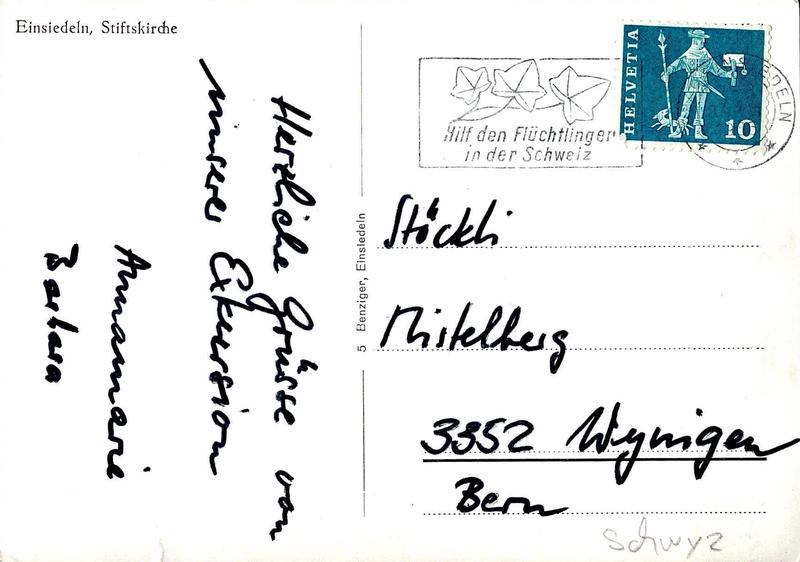 Einsiedeln, Stiftskirche
Herzliche Grüsse von
unserer Exkursion
Annamarie
Barbara
5 Benziger, Einsiedeln
Hilf den Flüchtlingen
in der Schweiz
HELVETIA
10
DELN
Stöckli
Mistelberg
3352 Wynigen
Bern
Schwyz